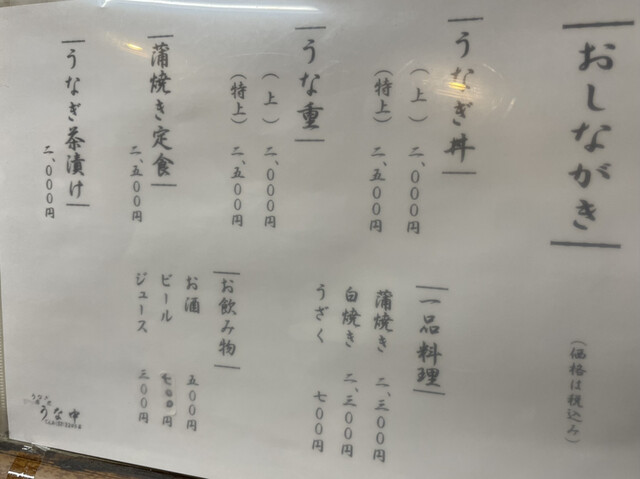 おしながき
(価格は税込み)
うなぎ丼
(上) 二、〇〇〇円
(特上) 二、五〇〇円
うな重
(上) 二、〇〇〇円
(特上) 二、五〇〇円
蒲焼き定食
二、五〇〇円
うなぎ茶漬け
二、〇〇〇円
一品料理
蒲焼き 二、三〇〇円
白焼き 二、三〇〇円
うざく 七〇〇円
お飲み物
お酒 五〇〇円
ビール 七〇〇円
ジュース 三〇〇円
うな中